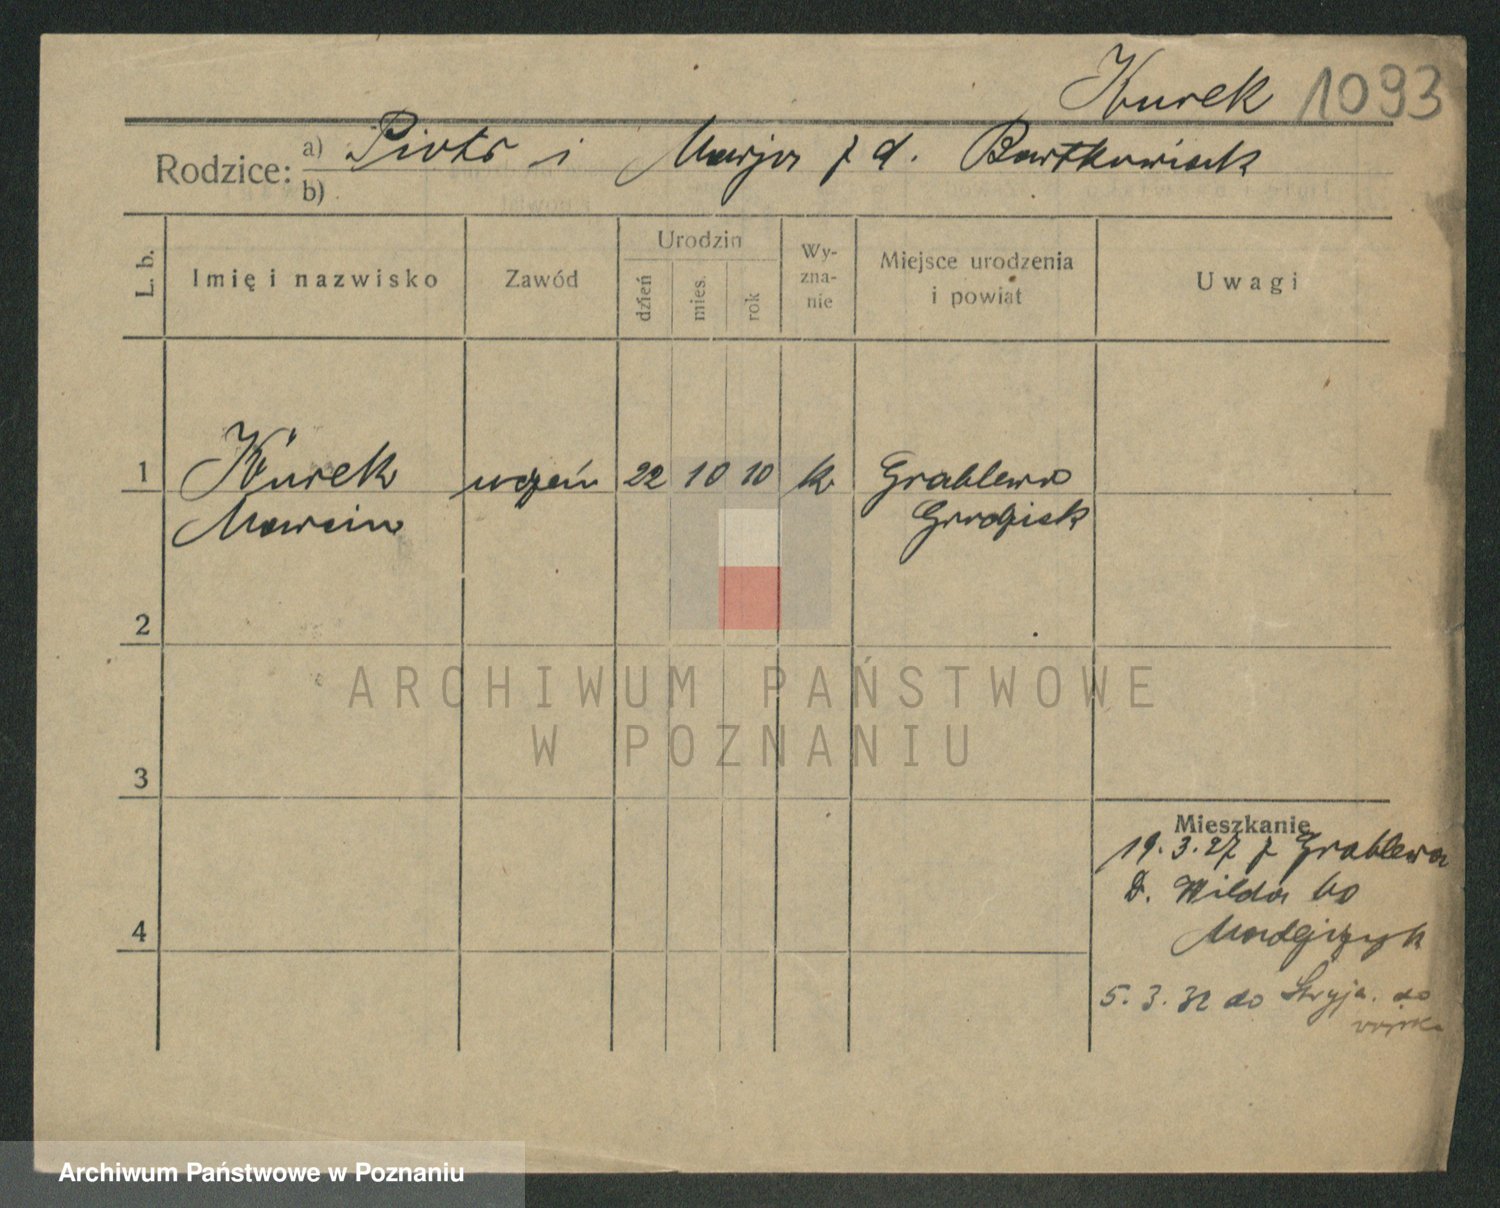 Kurek 1093
Rodzice: a) Piotr i Marja z d. Bartkowiak
b)
L. b. Imię i nazwisko Zawód Urodzin dzień mies. rok Wy-zna-nie Miejsce urodzenia i powiat Uwagi
1 Kurek uczeń 22 10 10 k Grablewo
Marcin Grodzisk
2
ARCHIWUM PAŃSTWOWE
W POZNANIU
3
Mieszkanie
19. 3. 27 z Grablewa
D. Wilda 60
4
5. 3. 32 do Stryja. do
wojska
Archiwum Państwowe w Poznaniu